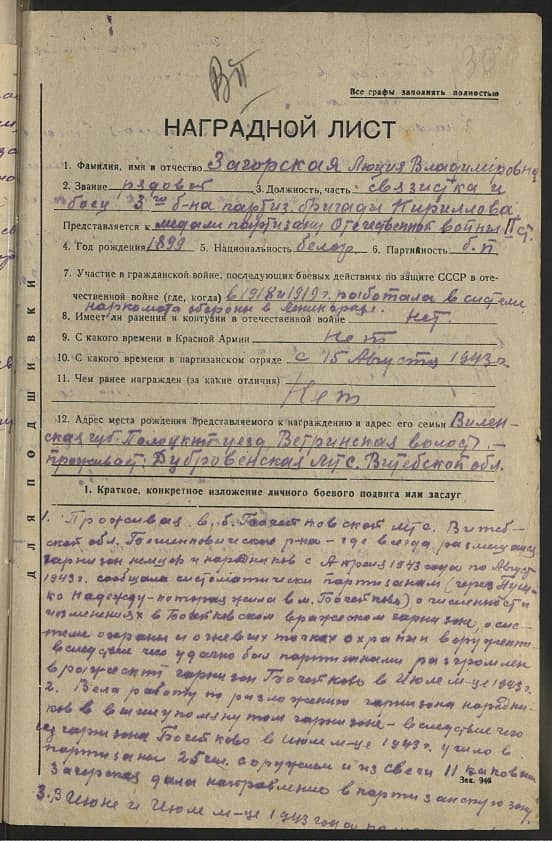 ВП
30
Все графы заполнять полностью
НАГРАДНОЙ ЛИСТ
1. Фамилия, имя и отчество Загорская Люция Владимировна
2. Звание рядовой 3. Должность, часть: связистка и
боец 3го б-на партиз. бригады Кириллова
Представляется к медали партизану Отечественной войны II ст.
4. Год рождения 1899 5. Национальность белор 6. Партийность б.п
7. Участие в гражданской войне, последующих боевых действиях по защите СССР в оте-
чественной войне (где, когда) в 1918 и 1919 г. работала в системе
наркомата обороны в Ленинграде.
8. Имеет ли ранения и контузии в отечественной войне нет.
9. С какого времени в Красной Армии Нет
10. С какого времени в партизанском отряде с 15 Августа 1943 г.
11. Чем ранее награжден (за какие отличия)
Нет
12. Адрес места рождения представляемого к награждению и адрес его семьи Вилен-
ская губ. уезд Ветринская волость.—
проживает: Дубровенская МТС. Витебской обл.
1. Краткое, конкретное изложение личного боевого подвига или заслуг
1. Проживая в МТС. Витеб-
ской обл. р-на где всегда размещался
гарнизон немцев и народников с Апреля 1943 года по Август
1943 г. сообщала систематически партизанам (через
Надежду которая жила в м. ) о численности и
изменениях в вражеском гарнизоне, о сис-
теме охраны и огневых точках охраны и вооружении
вследствие чего удачно был партизанами разгромлен
вражеский гарнизон в Июле м-це 1943 г.
2. Вела работу по разложению гарнизона народни-
ков в вышеупомянутом гарнизоне - вследствие чего
из гарнизона в Июле м-це 1943 г. ушло в
партизаны 25 чел. с оружием и из них 11
Загорская дала направление в партизанскую зону.
Зак. 946
3. В Июне и Июле м-це 1943 года
ДЛЯ ПОДШИВКИ